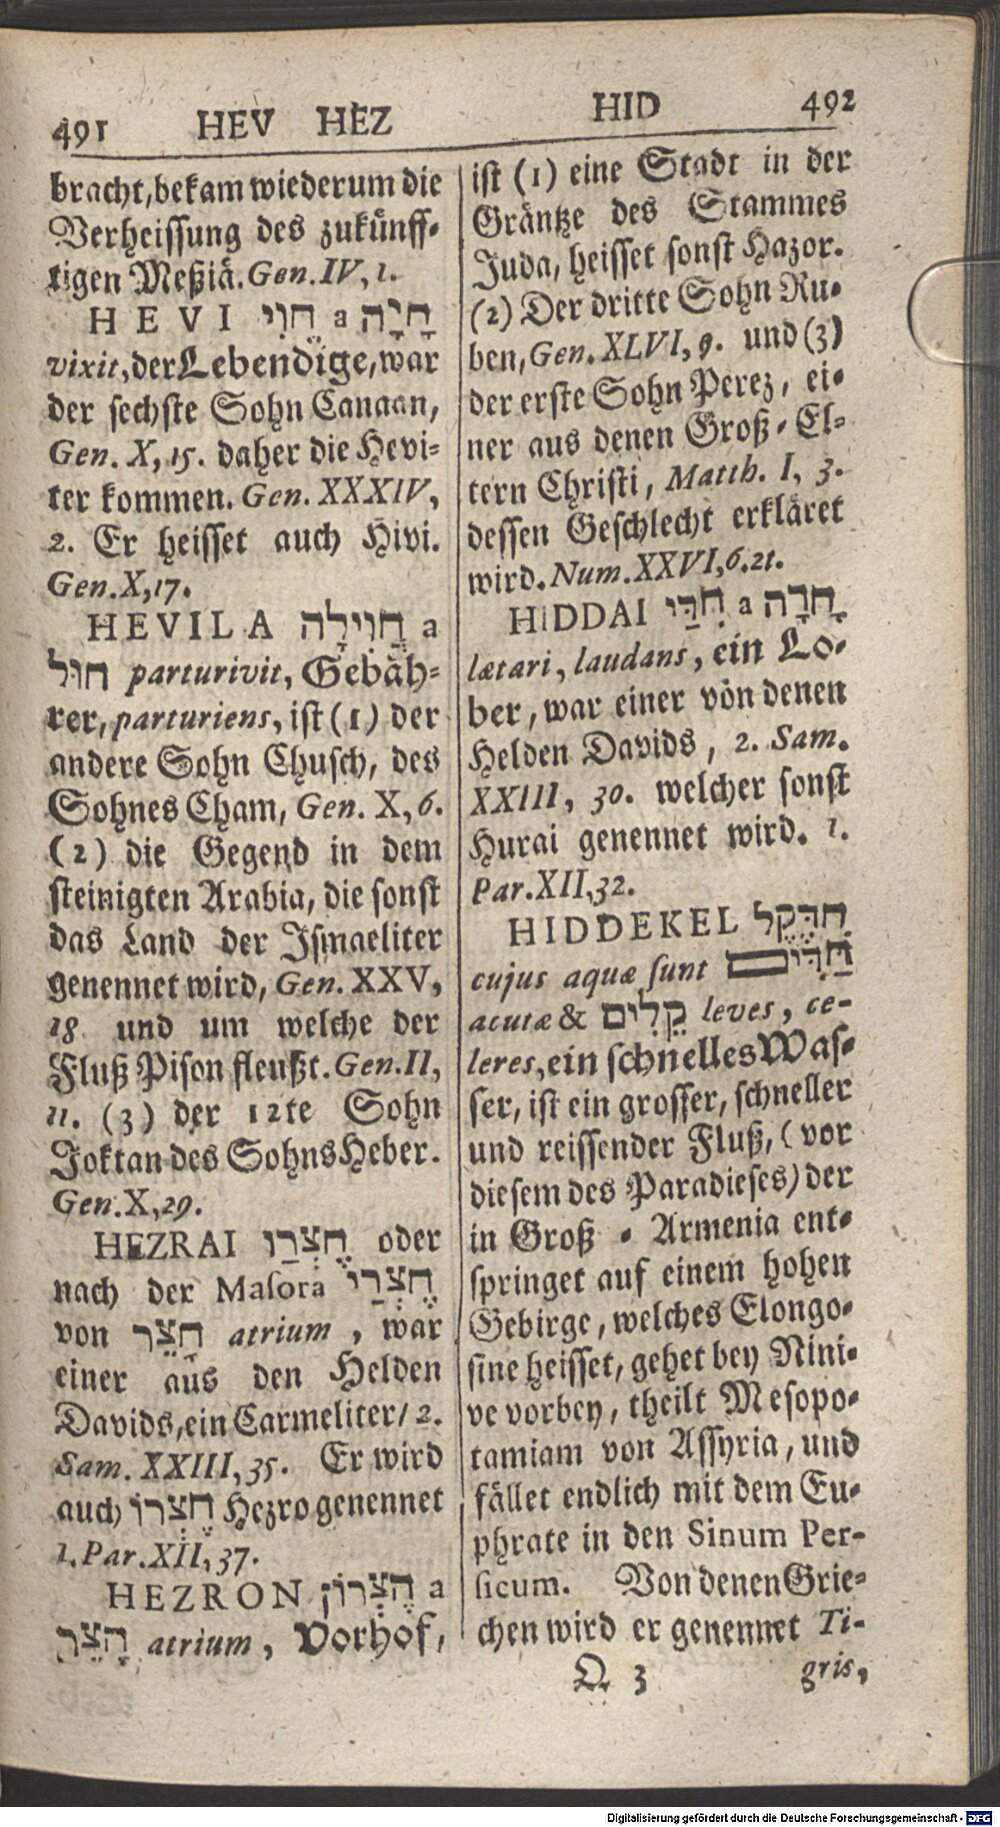 491 HEV HEZ
bracht, bekam wiederum die
Verheissung des zukünff-
tigen Meßiä. Gen. IV, 1.
HEVI חֱוִי a חָיָה
vixit, der Lebendige, war
der sechste Sohn Canaan,
Gen. X, 15. daher die Hevi-
ter kommen. Gen. XXXIV,
2. Er heisset auch Hivi.
Gen. X, 17.
HEVILA חֲוִילָה a
חוּל parturivit, Gebäh-
rer, parturiens, ist (1) der
andere Sohn Chusch, des
Sohnes Cham, Gen. X, 6.
(2) die Gegend in dem
steinigten Arabia, die sonst
das Land der Ismaeliter
genennet wird, Gen. XXV,
18 und um welche der
Fluß Pison fleußt. Gen. II,
11. (3) der 12te Sohn
Joktan des Sohns Heber.
Gen. X, 29.
HEZRAI חֶצְרַו oder
nach der Masora חֶצְרַי
von חָצֵר atrium, war
einer aus den Helden
Davids, ein Carmeliter / 2.
Sam. XXIII, 35. Er wird
auch חֶצְרוֹ Hezro genennet
1. Par. XII, 37.
HEZRON חֶצְרוֹן a
חָצֵר atrium, Vorhof,
HID 492
ist (1) eine Stadt in der
Gräntze des Stammes
Juda, heisset sonst Hazor.
(2) Der dritte Sohn Ru-
ben, Gen. XLVI, 9. und (3)
der erste Sohn Perez, ei-
ner aus denen Groß-El-
tern Christi, Matth. I, 3.
dessen Geschlecht erkläret
wird. Num. XXVI, 6. 21.
HIDDAI חִדַּי a חָדָה
lætari, laudans, ein Lo-
ber, war einer von denen
Helden Davids, 2. Sam.
XXIII, 30. welcher sonst
Hurai genennet wird. 1.
Par. XII, 32.
HIDDEKEL חִדֶּקֶל
cujus aquæ sunt חַדִּים
acutæ & קַלִים leves, ce-
leres, ein schnelles Was-
ser, ist ein grosser, schneller
und reissender Fluß, (vor
diesem des Paradieses) der
in Groß-Armenia ent-
springet auf einem hohen
Gebirge, welches Elongo-
sine heisset, gehet bey Nini-
ve vorbey, theilt Mesopo-
tamiam von Assyria, und
fället endlich mit dem Eu-
phrate in den Sinum Per-
sicum. Von denen Grie-
chen wird er genennet Ti-
Q 3 gris,
Digitalisierung gefördert durch die Deutsche Forschungsgemeinschaft - DFG